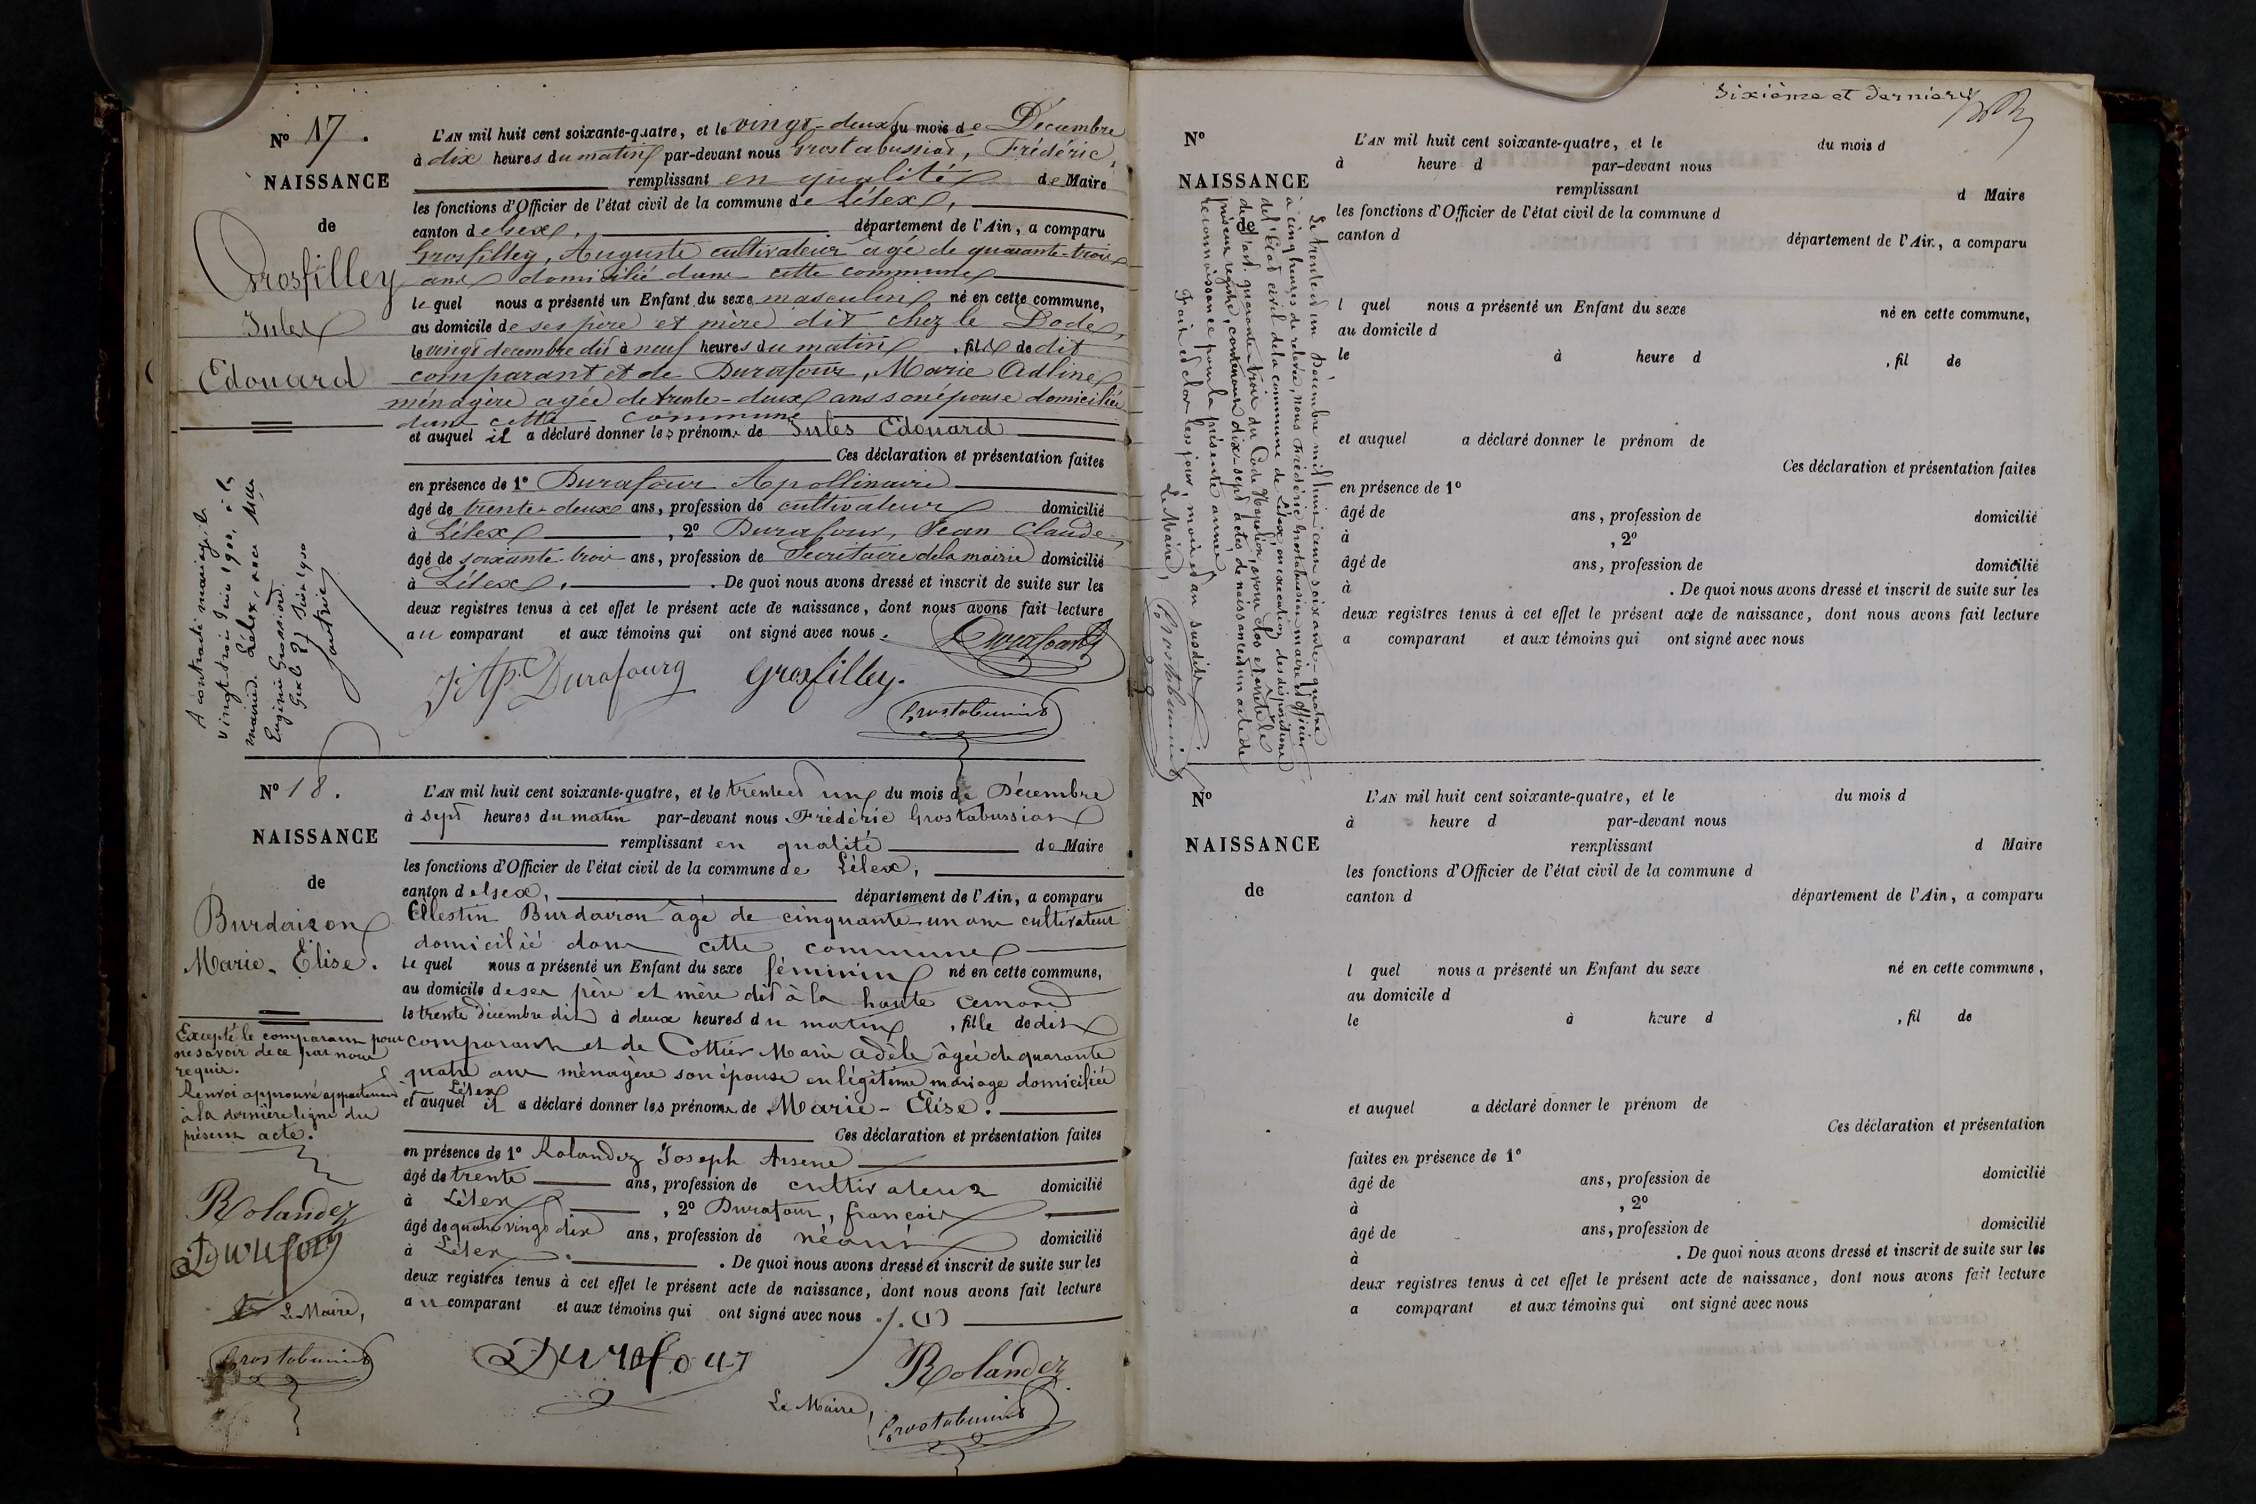 Nº 17.
NAISSANCE
de
Grosfilley
Jules
Edouard
A contracté mariage le
vingt trois Juin 1900, à la
mairie de Lélex, avec Melle
Eugénie Grossiord.
Gex le 27 Juin 1900
L'AN mil huit cent soixante-quatre, et le vingt-deux du mois de Décembre
à dix heures du matin par-devant nous Grostabussiat, Frédéric,
remplissant en qualité de Maire
les fonctions d'Officier de l'état civil de la commune de Lélex,
canton de Gex, département de l'Ain, a comparu
Grosfilley, Auguste cultivateur agé de quarante-trois
ans domicilié dans cette commune
lequel nous a présenté un Enfant du sexe masculin né en cette commune,
au domicile de ses père et mère dit chez le Dode,
le vingt decembre dit à neuf heures du matin, fils de dit
comparant et de Durafour, Marie Adline
ménagère agée de trente-deux ans son épouse domiciliée
dans cette commune
et auquel il a déclaré donner les prénoms de Jules Edouard
Ces déclaration et présentation faites
en présence de 1º Durafour Apollinaire
âgé de trente-deux ans, profession de cultivateur domicilié
à Lélex, 2º Durafour, Jean Claude
âgé de soixante-trois ans, profession de Secrétaire de la mairie domicilié
à Lélex. De quoi nous avons dressé et inscrit de suite sur les
deux registres tenus à cet effet le présent acte de naissance, dont nous avons fait lecture
au comparant et aux témoins qui ont signé avec nous.
Durafourg
Grosfilley.
Durafour
Grostabussiat
Nº 18.
NAISSANCE
de
Burdairon
Marie-Élise.
Excepté le comparant pour
ne savoir de ce par nous
requis.
Renvoi approuvé appartenant
à la dernière ligne du
présent acte.
Rolandez
Durafour
Le Maire,
Grostabussiat
L'AN mil huit cent soixante-quatre, et le trente et un du mois de Décembre
à sept heures du matin par-devant nous Frédéric Grostabussiat
remplissant en qualité de Maire
les fonctions d'Officier de l'état civil de la commune de Lélex,
canton de Gex, département de l'Ain, a comparu
Célestin Burdairon âgé de cinquante-un ans cultivateur
domicilié dans cette commune
lequel nous a présenté un Enfant du sexe féminin né en cette commune,
au domicile de ses père et mère dit à la haute
le trente décembre dit à deux heures du matin, fille de dit
comparant et de Cottier Marie Adèle âgée de quarante
quatre ans ménagère son épouse en légitime mariage domiciliée
Lélex
et auquel il a déclaré donner les prénoms de Marie-Elise.
Ces déclaration et présentation faites
en présence de 1º Rolandez Joseph Arsene
âgé de trente ans, profession de cultivateur domicilié
à Lélex, 2º Durafour, françois
âgé de quatre vingt dix ans, profession de néant domicilié
à Lélex. De quoi nous avons dressé et inscrit de suite sur les
deux registres tenus à cet effet le présent acte de naissance, dont nous avons fait lecture
au comparant et aux témoins qui ont signé avec nous ./. (1)
Durafour
Rolandez
Le Maire,
Grostabussiat
Sixième et dernier
Nº
NAISSANCE
Le trente et un Décembre mil huit cent soixante-quatre
à cinq heures de relevée, nous Frédéric Grostabussiat maire et officier
de l'état civil de la commune de Lélex, en exécution des dispositions
de l'art. quarante-trois du Code Napoléon, avons clos et arrêté le
présent registre, contenant dix-sept actes de naissance et un acte de
reconnaissance pour la présente année.
Fait et clos les jour, mois et an susdits
Le Maire,
Grostabussiat
L'AN mil huit cent soixante-quatre, et le du mois d
à heure d par-devant nous
remplissant d Maire
les fonctions d'Officier de l'état civil de la commune d
canton d département de l'Ain, a comparu
l quel nous a présenté un Enfant du sexe né en cette commune,
au domicile d
le à heure d , fil de
et auquel a déclaré donner le prénom de
Ces déclaration et présentation faites
en présence de 1º
âgé de ans, profession de domicilié
à , 2º
âgé de ans, profession de domicilié
à . De quoi nous avons dressé et inscrit de suite sur les
deux registres tenus à cet effet le présent acte de naissance, dont nous avons fait lecture
a comparant et aux témoins qui ont signé avec nous
Nº
NAISSANCE
de
L'AN mil huit cent soixante-quatre, et le du mois d
à heure d par-devant nous
remplissant d Maire
les fonctions d'Officier de l'état civil de la commune d
canton d département de l'Ain, a comparu
l quel nous a présenté un Enfant du sexe né en cette commune,
au domicile d
le à heure d , fil de
et auquel a déclaré donner le prénom de
Ces déclaration et présentation
faites en présence de 1º
âgé de ans, profession de domicilié
à , 2º
âgé de ans, profession de domicilié
à . De quoi nous avons dressé et inscrit de suite sur les
deux registres tenus à cet effet le présent acte de naissance, dont nous avons fait lecture
a comparant et aux témoins qui ont signé avec nous